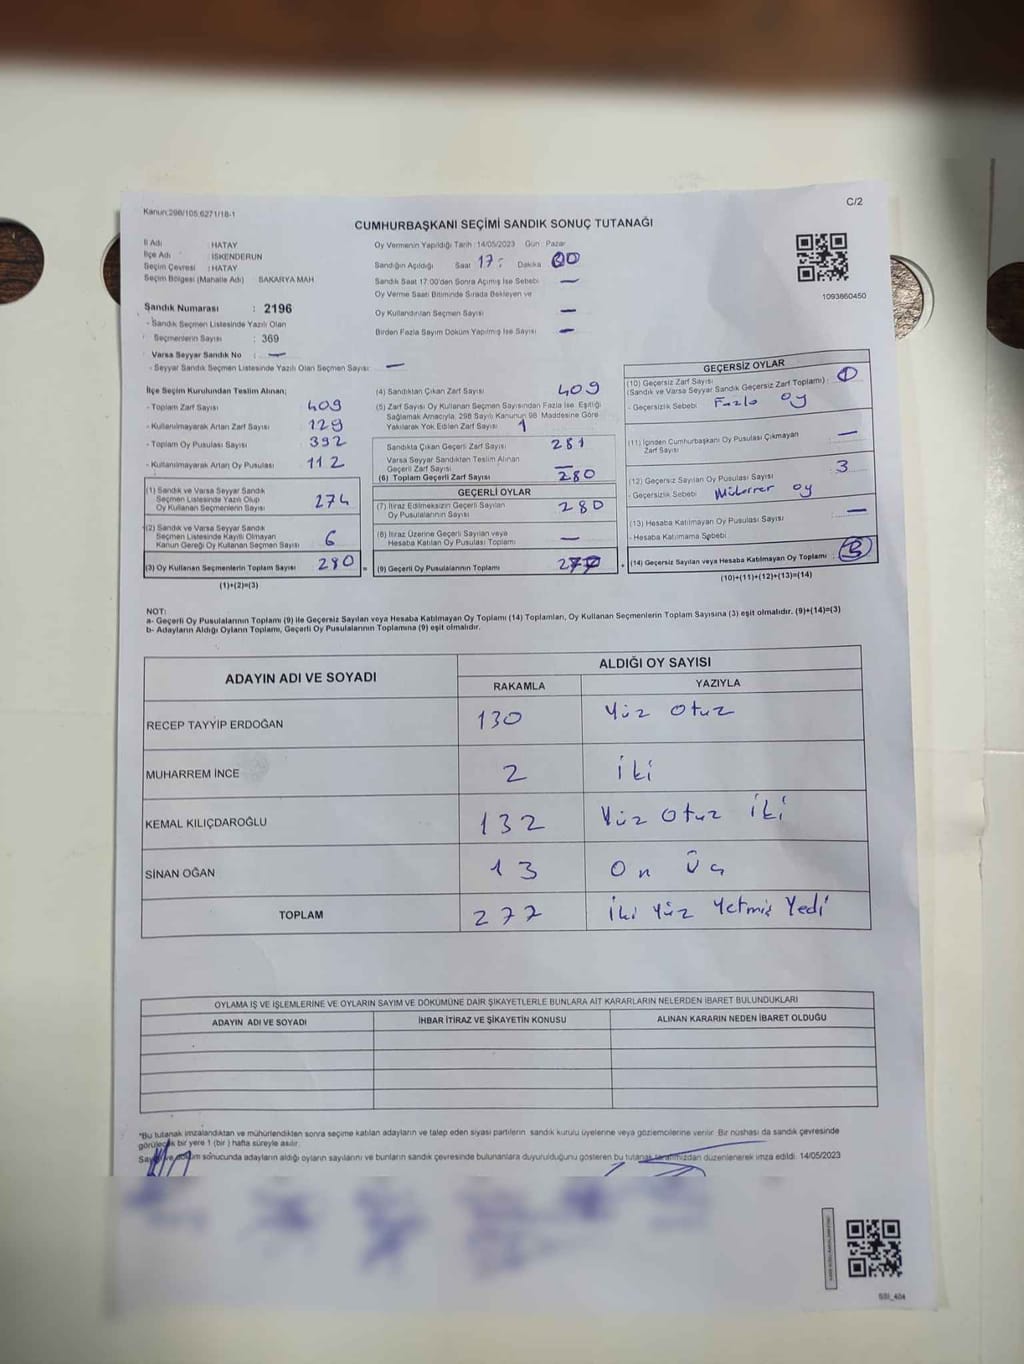 Kanun:298/105,6271/18-1
C/2
CUMHURBAŞKANI SEÇİMİ SANDIK SONUÇ TUTANAĞI
İl Adı : HATAY
İlçe Adı : İSKENDERUN
Seçim Çevresi : HATAY
Seçim Bölgesi (Mahalle Adı) SAKARYA MAH
Sandık Numarası : 2196
- Sandık Seçmen Listesinde Yazılı Olan
Seçmenlerin Sayısı : 369
Varsa Seyyar Sandık No : —
- Seyyar Sandık Seçmen Listesinde Yazılı Olan Seçmen Sayısı: —
Oy Vermenin Yapıldığı Tarih : 14/05/2023 Gün : Pazar
Sandığın Açıldığı Saat 17: Dakika 00
Sandık Saat 17:00'den Sonra Açımış İse Sebebi —
Oy Verme Saati Bitiminde Sırada Bekleyen ve
Oy Kullandırılan Seçmen Sayısı —
Birden Fazla Sayım Döküm Yapılmış İse Sayısı —
1093860450
İlçe Seçim Kurulundan Teslim Alınan;
- Toplam Zarf Sayısı 409
- Kullanılmayarak Artan Zarf Sayısı 129
- Toplam Oy Pusulası Sayısı 392
- Kullanılmayarak Artan Oy Pusulası 112
(1) Sandık ve Varsa Seyyar Sandık
Seçmen Listesinde Yazılı Olup
Oy Kullanan Seçmenlerin Sayısı 274
(2) Sandık ve Varsa Seyyar Sandık
Seçmen Listesinde Kayıtlı Olmayan
Kanun Gereği Oy Kullanan Seçmen Sayısı 6
(3) Oy Kullanan Seçmenlerin Toplam Sayısı 280 =
(1)+(2)=(3)
(4) Sandıktan Çıkan Zarf Sayısı 409
(5) Zarf Sayısı Oy Kullanan Seçmen Sayısından Fazla İse Eşitliği
Sağlamak Amacıyla, 298 Sayılı Kanunun 98. Maddesine Göre
Yakılarak Yok Edilen Zarf Sayısı 1
Sandıkta Çıkan Geçerli Zarf Sayısı 281
Varsa Seyyar Sandıktan Teslim Alınan
Geçerli Zarf Sayısı —
(6) Toplam Geçerli Zarf Sayısı 280
GEÇERLİ OYLAR
(7) İtiraz Edilmeksizin Geçerli Sayılan
Oy Pusulalarının Sayısı 280
(8) İtiraz Üzerine Geçerli Sayılan veya
Hesaba Katılan Oy Pusulası Toplamı —
(9) Geçerli Oy Pusulalarının Toplamı 277 +
GEÇERSİZ OYLAR
(10) Geçersiz Zarf Sayısı
(Sandık ve Varsa Seyyar Sandık Geçersiz Zarf Toplamı) : 1
- Geçersizlik Sebebi Fazla oy
(11) İçinden Cumhurbaşkanı Oy Pusulası Çıkmayan
Zarf Sayısı —
(12) Geçersiz Sayılan Oy Pusulası Sayısı 3
- Geçersizlik Sebebi Mükerrer oy
(13) Hesaba Katılmayan Oy Pusulası Sayısı —
- Hesaba Katılmama Sebebi
(14) Geçersiz Sayılan veya Hesaba Katılmayan Oy Toplamı 3
(10)+(11)+(12)+(13)=(14)
NOT:
a- Geçerli Oy Pusulalarının Toplamı (9) ile Geçersiz Sayılan veya Hesaba Katılmayan Oy Toplamı (14) Toplamları, Oy Kullanan Seçmenlerin Toplam Sayısına (3) eşit olmalıdır. (9)+(14)=(3)
b- Adayların Aldığı Oyların Toplamı, Geçerli Oy Pusulalarının Toplamına (9) eşit olmalıdır.
ADAYIN ADI VE SOYADI ALDIĞI OY SAYISI
RAKAMLA YAZIYLA
RECEP TAYYİP ERDOĞAN 130 Yüz Otuz
MUHARREM İNCE 2 İki
KEMAL KILIÇDAROĞLU 132 Yüz Otuz İki
SİNAN OĞAN 13 On Üç
TOPLAM 277 İki Yüz Yetmiş Yedi
OYLAMA İŞ VE İŞLEMLERİNE VE OYLARIN SAYIM VE DÖKÜMÜNE DAİR ŞİKAYETLERLE BUNLARA AİT KARARLARIN NELERDEN İBARET BULUNDUKLARI
ADAYIN ADI VE SOYADI İHBAR İTİRAZ VE ŞİKAYETİN KONUSU ALINAN KARARIN NEDEN İBARET OLDUĞU
*Bu tutanak imzalandıktan ve mühürlendikten sonra seçime katılan adayların ve talep eden siyasi partilerin sandık kurulu üyelerine veya gözlemcilerine verilir. Bir nüshası da sandık çevresinde
görülecek bir yere 1 (bir) hafta süreyle asılır.
Sayım ve döküm sonucunda adayların aldığı oyların sayılarını ve bunların sandık çevresinde bulunanlara duyurulduğunu gösteren bu tutanak tarafımızdan düzenlenerek imza edildi. 14/05/2023
SSI_404